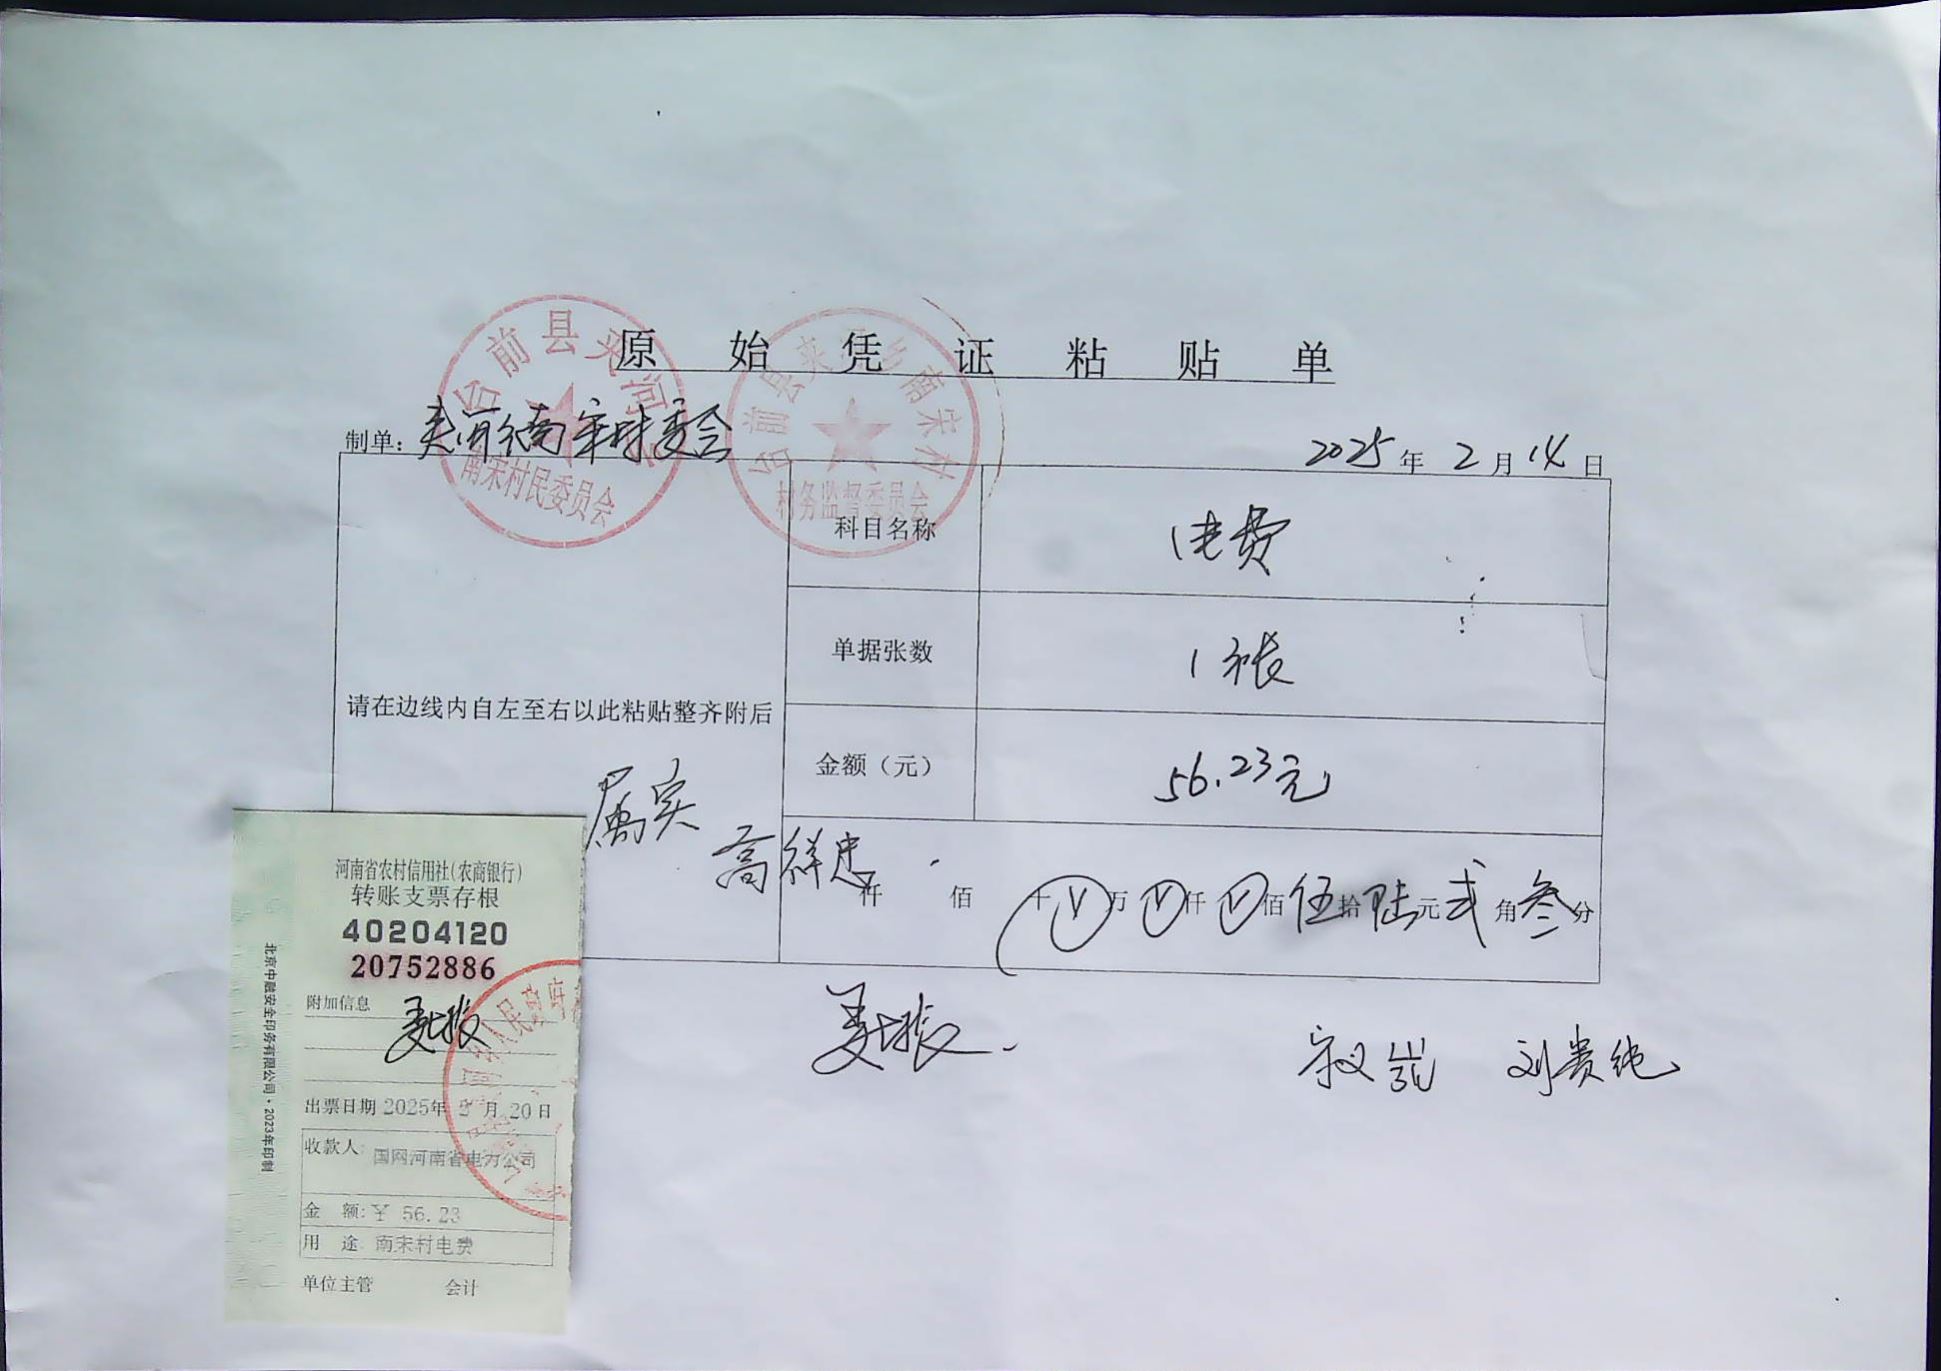 原始凭证粘贴单
台前县夹河
南宋村民委员会
台前县夹河乡南宋村
村务监督委员会
制单：夹河乡南宋村委会
2025年2月14日
科目名称 电费
单据张数 1张
请在边线内自左至右以此粘贴整齐附后
金额（元） 56.23元
属实
高祥忠
仟 佰 十 万 仟 佰 伍拾陆元弍角叁分
河南省农村信用社(农商银行)
转账支票存根
40204120
20752886
附加信息
出票日期 2025年2月20日
收款人: 国网河南省电力公司
金 额:¥ 56.23
用 途: 南宋村电费
单位主管 会计
北京中融安全印务有限公司·2023年印制
人民政府
刘贵纯